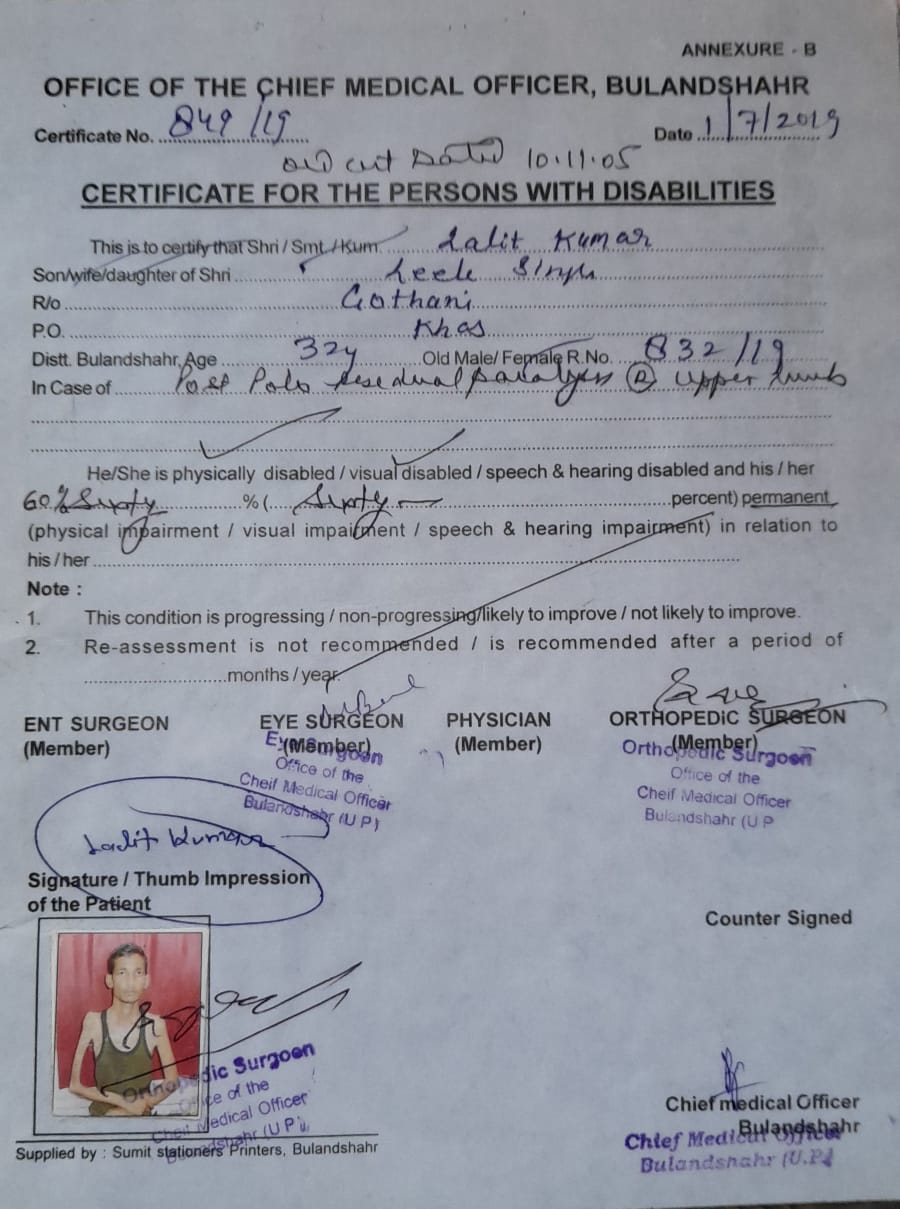 ANNEXURE - B
OFFICE OF THE CHIEF MEDICAL OFFICER, BULANDSHAHR
Certificate No. 849/19 Date 1/7/2019
old cert Dated 10.11.05
CERTIFICATE FOR THE PERSONS WITH DISABILITIES
This is to certify that Shri / Smt. / Kum. Lalit Kumar
Son/wife/daughter of Shri Leele Singh
R/o Gothani
P.O. Khas
Distt. Bulandshahr, Age 32y Old Male/ Female R.No. 832/19
In Case of Post Polo residual paralysis R upper limb
He/She is physically disabled / visual disabled / speech & hearing disabled and his / her
60% Sixty % ( Sixty percent) permanent
(physical impairment / visual impairment / speech & hearing impairment) in relation to
his / her
Note :
1. This condition is progressing / non-progressing/likely to improve / not likely to improve.
2. Re-assessment is not recommended / is recommended after a period of
months / year.
ENT SURGEON EYE SURGEON PHYSICIAN ORTHOPEDIC SURGEON
(Member) (Member) (Member) (Member)
Eye Surgoon
Office of the
Cheif Medical Officer
Bulandshahr (U P)
Orthopedic Surgoon
Office of the
Cheif Medical Officer
Bulandshahr (U P
Lalit Kumar
Signature / Thumb Impression
of the Patient
Counter Signed
Orthopedic Surgoon
Office of the
Cheif Medical Officer
Bulandshahr (U P)
Chief medical Officer
Bulandshahr
Chief Medical Officer
Bulandshahr (U.P.)
Supplied by : Sumit stationers Printers, Bulandshahr